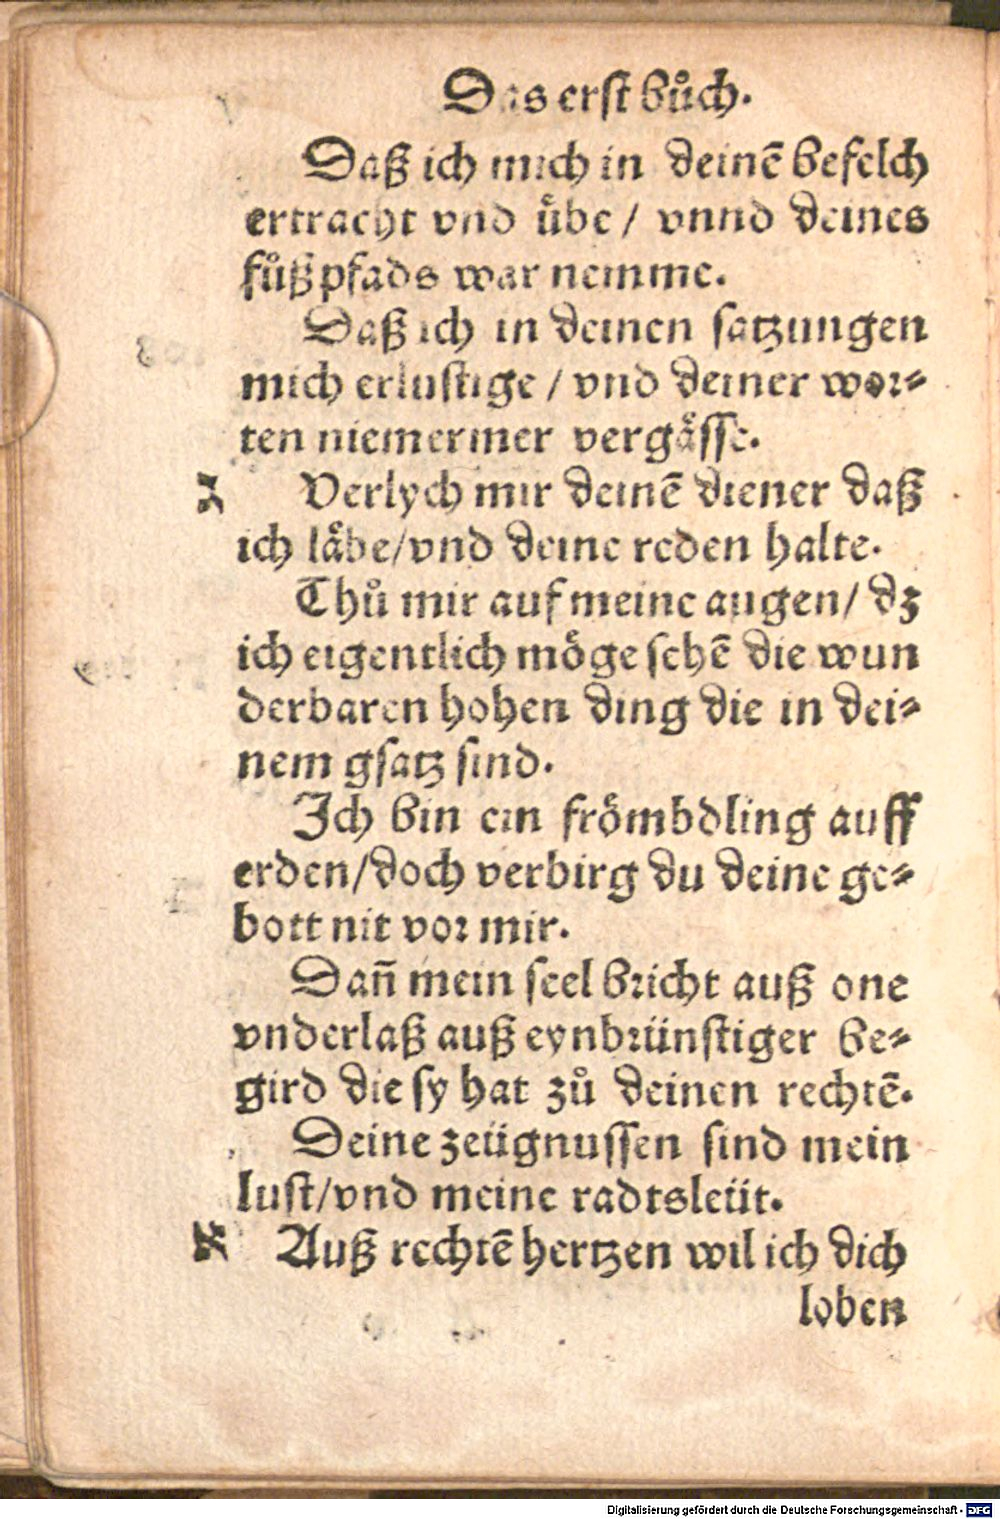 Das erst bůch.
Daß ich mich in deinē befelch
ertracht vnd uͤbe / vnnd deines
fůßpfads war nemme.
Daß ich in deinen satzungen
mich erlustige / vnd deiner wor⸗
ten niemermer vergaͤsse.
ג Verlych mir deinē diener daß
ich laͤbe/vnd deine reden halte.
Thů mir auf meine augen/ dz
ich eigentlich moͤge sehē die wun
derbaren hohen ding die in dei⸗
nem gsatz sind.
Ich bin ein froͤmbdling auff
erden/doch verbirg du deine ge⸗
bott nit vor mir.
Dañ mein seel bricht auß one
vnderlaß auß eynbrünstiger be⸗
gird die sy hat zů deinen rechtē.
Deine zeügnussen sind mein
lust/vnd meine radtsleüt.
א Auß rechtē hertzen wil ich dich
loben
Digitalisierung gefördert durch die Deutsche Forschungsgemeinschaft - DFG